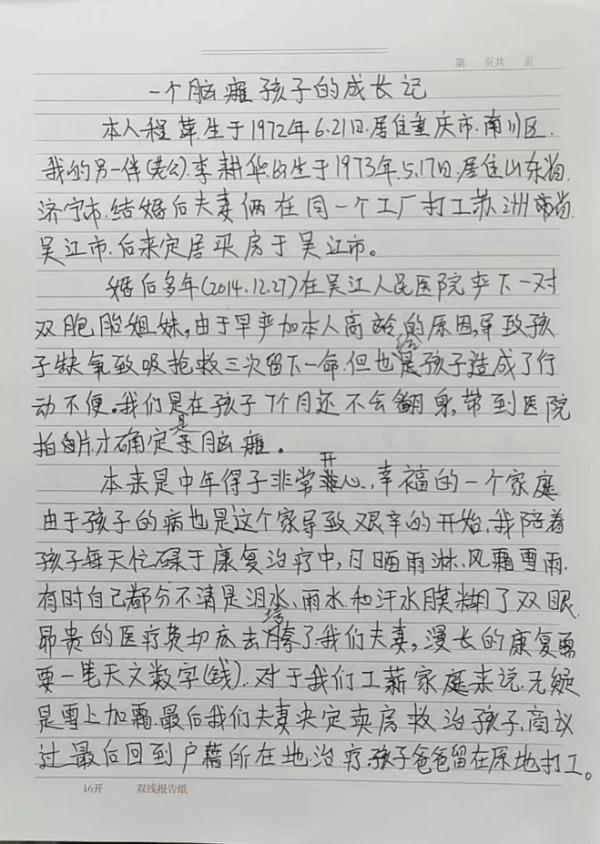 第 页共 页
一个脑瘫孩子的成长记
本人程萍.生于1972年6.21日.居住重庆市.南川区.
我的另一伴(老公).李耕华的生于1973年.5.17日.居住山东省.
济宁市.结婚后夫妻俩在同一个工厂打工苏洲市省.
吴江市.后来定居买房于吴江市。
婚后多年(2014.12.27)在吴江人民医院产下一对
双胞胎姐妹,由于早产加本人高龄的原因,导致孩
子缺氧致吸抢救三次留下一命.但也给孩子造成了行
动不便。我们是在孩子7个月还不会翻身,带到医院
拍片才确定是脑瘫。
本来是中年得子非常开心.幸福的一个家庭
由于孩子的病也是这个家导致艰辛的开始.我陪着
孩子每天忙碌于康复治疗中,日晒雨淋.风霜雪雨.
有时自己都分不清是泪水.雨水.和汗水膜糊了双眼.
昂贵的医疗费切底击垮了我们夫妻,漫长的康复需
要一笔天文数字(钱).对于我们工薪家庭来说.无疑
是雪上加霜.最后我们夫妻决定卖房救治孩子.商议
过最后回到户藉所在地.治疗.孩子爸爸留在原地打工。
16开 双线报告纸